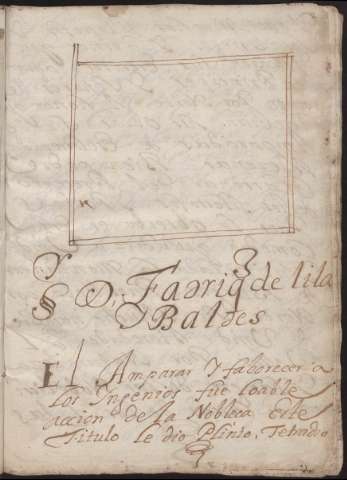 Y
S D. Fadriq de lila
Y Baldes
El Amparar Y faborecer a
Los Ingenios fue loable
accion de la Nobleca este
Titulo le dio Plinio,